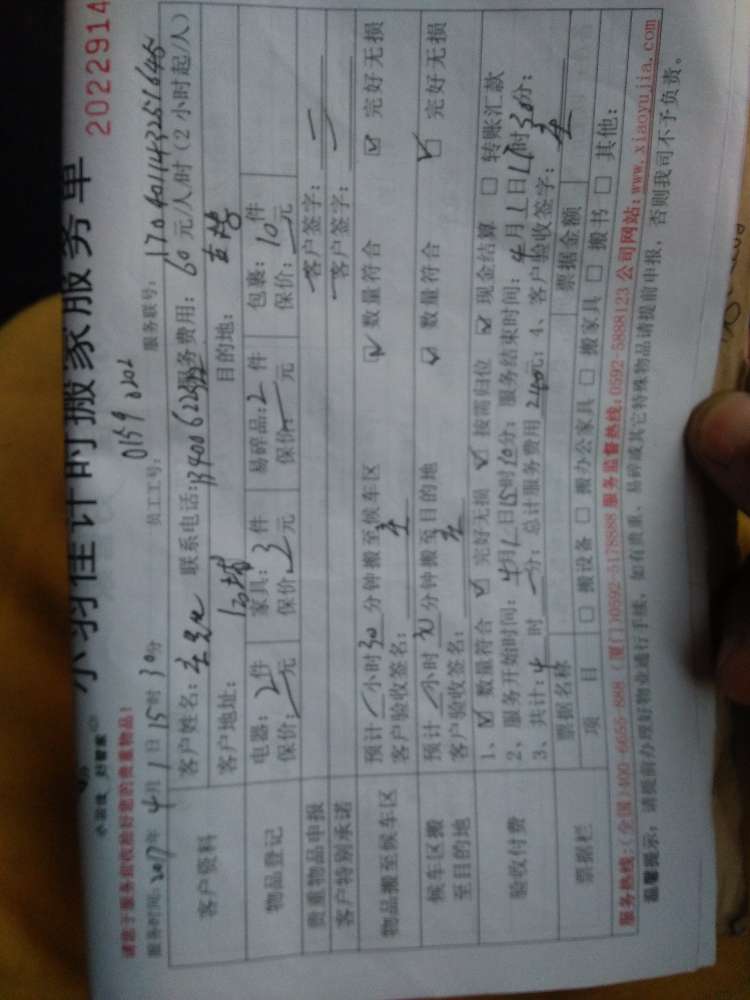 小羽佳计时搬家服务单 2022914
小羽佳 好管家
请您于服务前收拾好您的贵重物品!
服务时间:2017年4月1日15时30分 员工工号: 0159 0202 服务联号:
客户资料 客户姓名: 联系电话: 服务费用:60元/人/时(2小时起/人)
客户地址: 目的地:
物品登记 电器:2件 家具:3件 易碎品:2件 包裹:10件
保价: 元 保价: 元 保价: 元 保价: 元
贵重物品申报 客户签字:
客户特别承诺 客户签字:
物品搬至候车区 预计 小时30分钟搬至候车区 数量符合 完好无损
客户验收签名:
候车区搬至目的地 预计 小时 分钟搬至目的地 数量符合 完好无损
客户验收签名:
验收付费 1、 数量符合 完好无损 按需归位 现金结算 转账汇款
2、服务开始时间:4月1日15时10分;服务结束时间:4月1日 时30分;
3、共计:4时 分;总计服务费用 元;4、客户验收签字:
票据栏 票据名称 票据金额
项目 搬设备 搬办公家具 搬家具 搬书 其他:
服务热线:(全国)400-6655-888 (厦门)0592-5178888 服务监督热线:0592-5888123 公司网站:www.xiaoyujia.com
温馨提示:请提前办理好物业通行手续,如有贵重、易碎或其它特殊物品请提前申报,否则我司不予负责。